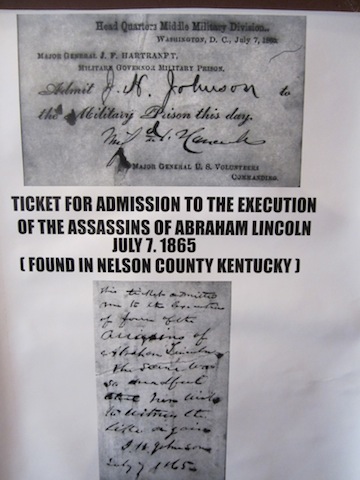 Head Quarters Middle Military Division,
WASHINGTON, D. C., July 7, 1865.
MAJOR GENERAL J. F. HARTRANFT,
MILITARY GOVERNOR MILITARY PRISON.
Admit J. H. Johnson to
the Military Prison this day.
MAJOR GENERAL U. S. VOLUNTEERS
COMMANDING.
TICKET FOR ADMISSION TO THE EXECUTION
OF THE ASSASSINS OF ABRAHAM LINCOLN
JULY 7. 1865
( FOUND IN NELSON COUNTY KENTUCKY )
This ticket admitted
me to the Execution
of four of the
assassins of
Abraham Lincoln
the scene was
so dreadful
to witness the
like again
J H Johnson
July 7 1865